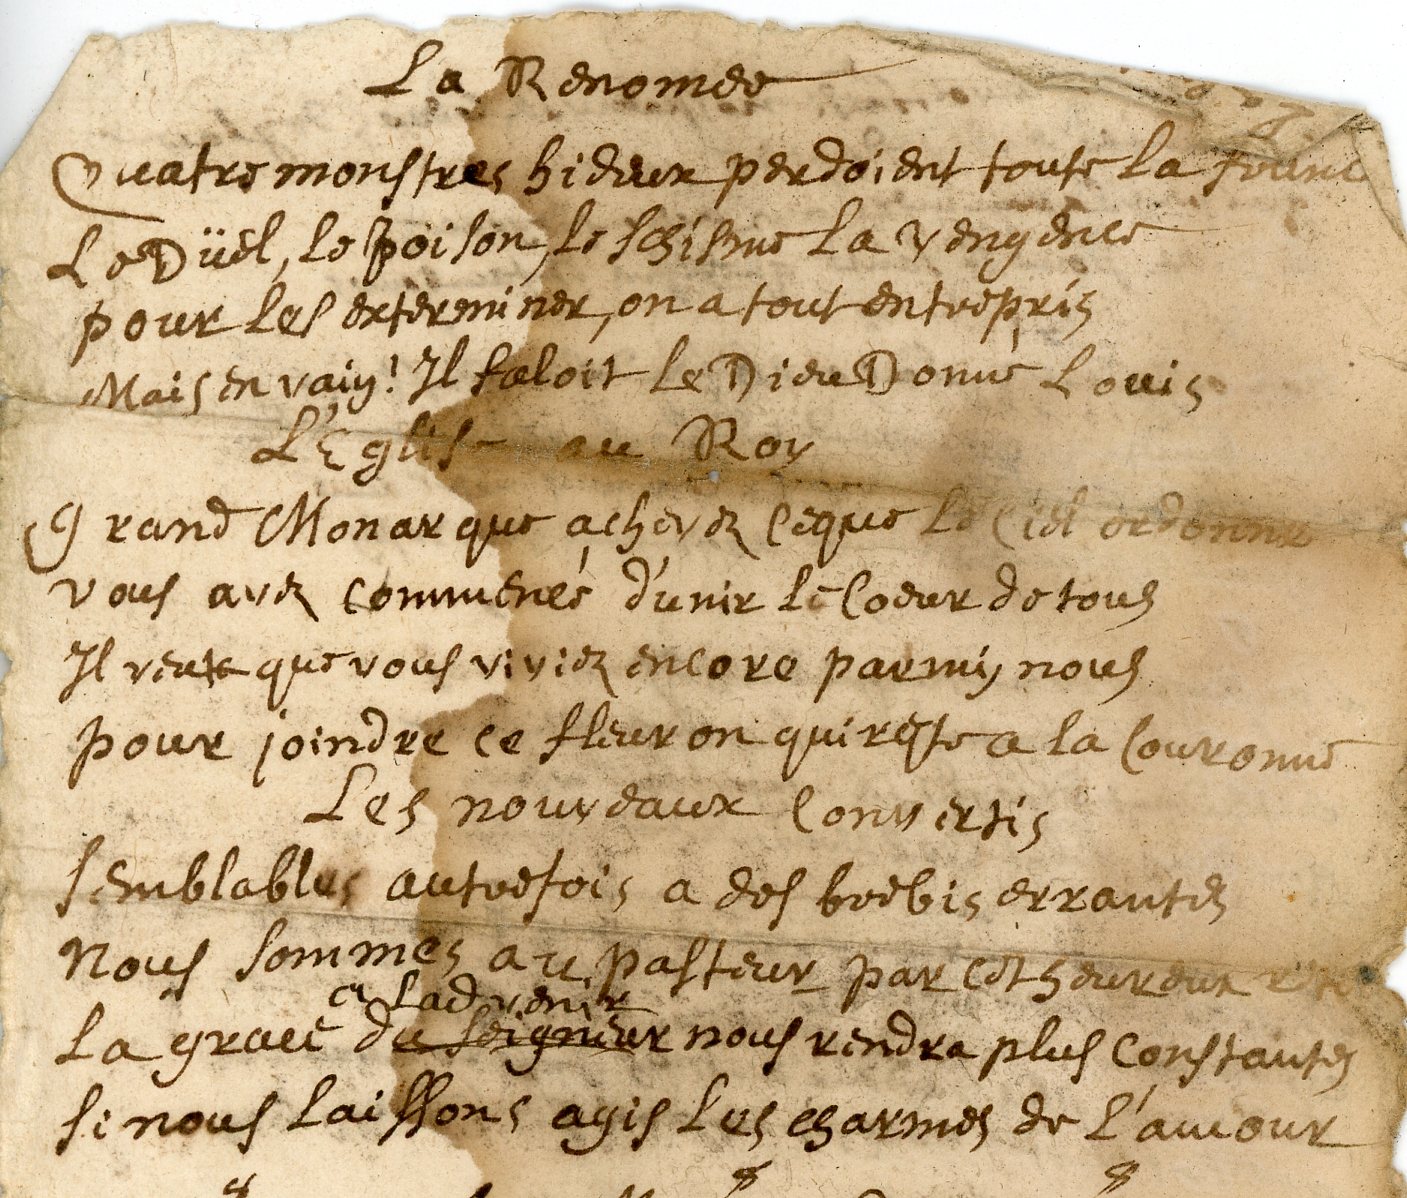 La Renomée
Quatre monstres hideux perdoient toute la franc
Le Düel, le poison, le schisme la vengence
pour les exterminer, on a tout entrepris
Mais en vain! Il faloit le Dieu Donné Louis
L'Eglise au Roy
Grand Monarque achevez ce que le Ciel ordonne
vous avez commencé d'unir le Coeur de tous
Il veut que vous viviez encore parmy nous
pour joindre ce fleuron qui reste a la Couronne
Les nouveaux Convertis
Semblables autrefois a des brebis errantes
Nous sommes au pasteur par cet heureux
a Ladvenir
La grace du seigneur nous rendra plus constantes
si nous laissons agis les charmes de L'amour